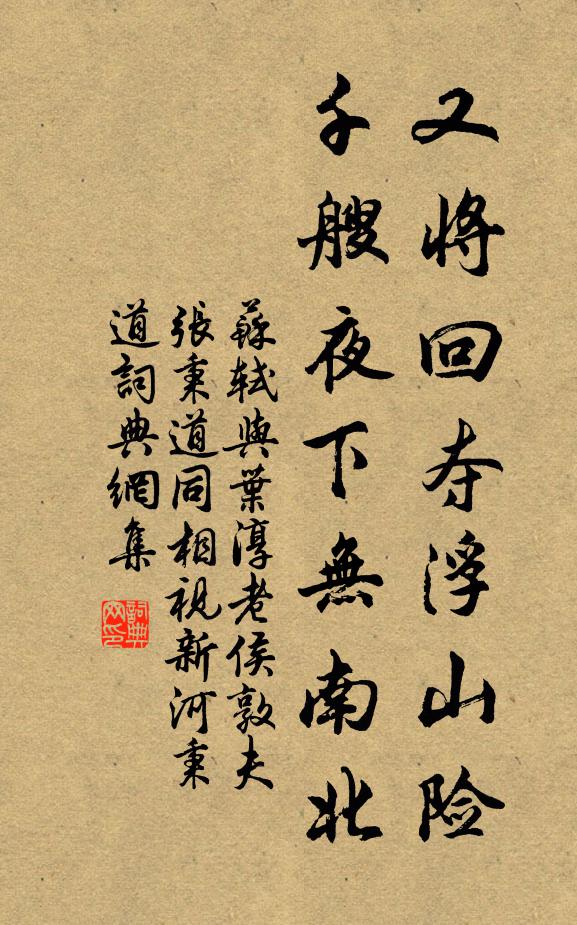 又將回夺浮山险
千艘夜下無南北
蘇軾與葉淳老侯敦夫
張秉道同相視新河秉
道詞典網集
詞典
网印